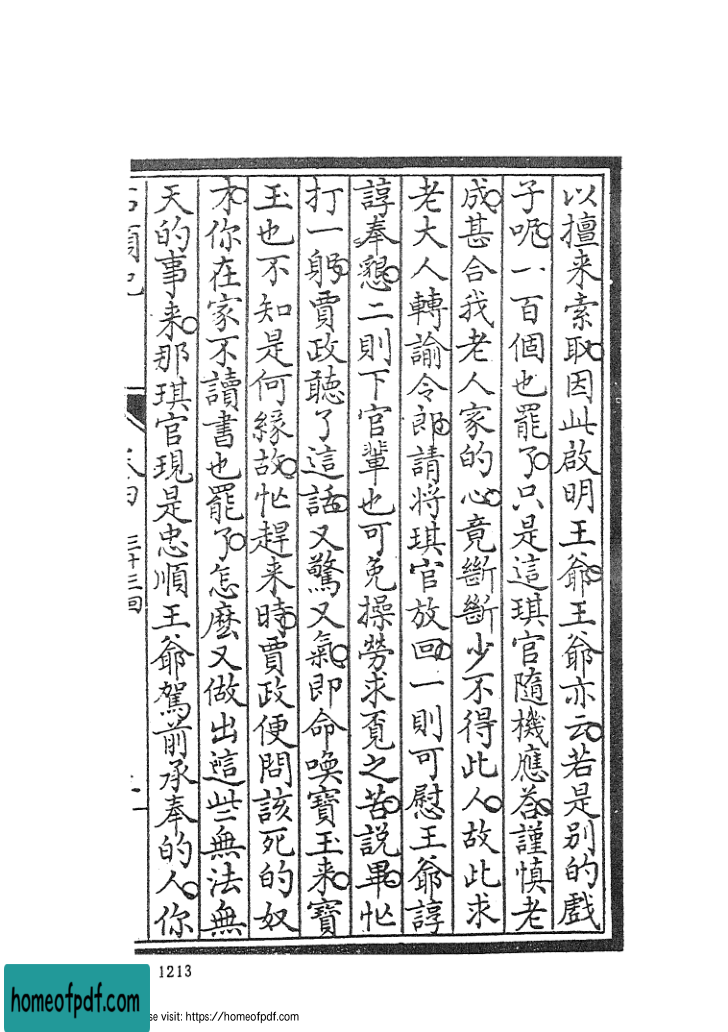 以擅来索取○因此啟明王爺○王爺亦云○若是別的戲
子呢○一百個也罷了○只是這琪官隨機應答○謹慎老
成○甚合我老人家的心○竟斷斷少不得此人○故此求
老大人轉諭令郎○請将琪官放回○一則可慰王爺諄
諄奉懇○二則下官輩也可免操勞求覔之苦○説畢○忙
打一躬○賈政聽了這話○又驚又氣○即命喚寶玉来○寶
玉也不知是何緣故○忙趕来時○賈政便問該死的奴
才○你在家不讀書也罷了○怎麽又做出這些無法無
天的事来○那琪官現是忠順王爺駕前承奉的人○你
三十三回
1213
homeofpdf.com
se visit: https://homeofpdf.com